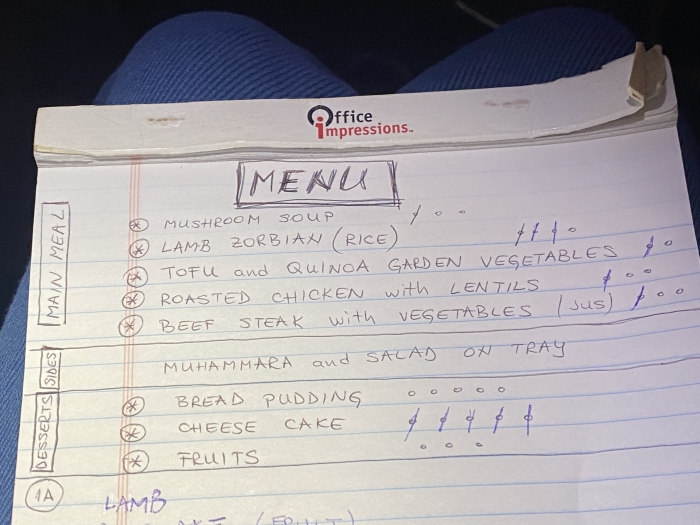 Office
Impressions.
MENU
MAIN MEAL
MUSHROOM SOUP
LAMB ZORBIAN (RICE)
TOFU and QUINOA GARDEN VEGETABLES
ROASTED CHICKEN with LENTILS
BEEF STEAK with VEGETABLES (JUS)
SIDES
MUHAMMARA and SALAD ON TRAY
DESSERTS
BREAD PUDDING
CHEESE CAKE
FRUITS
1A
LAMB